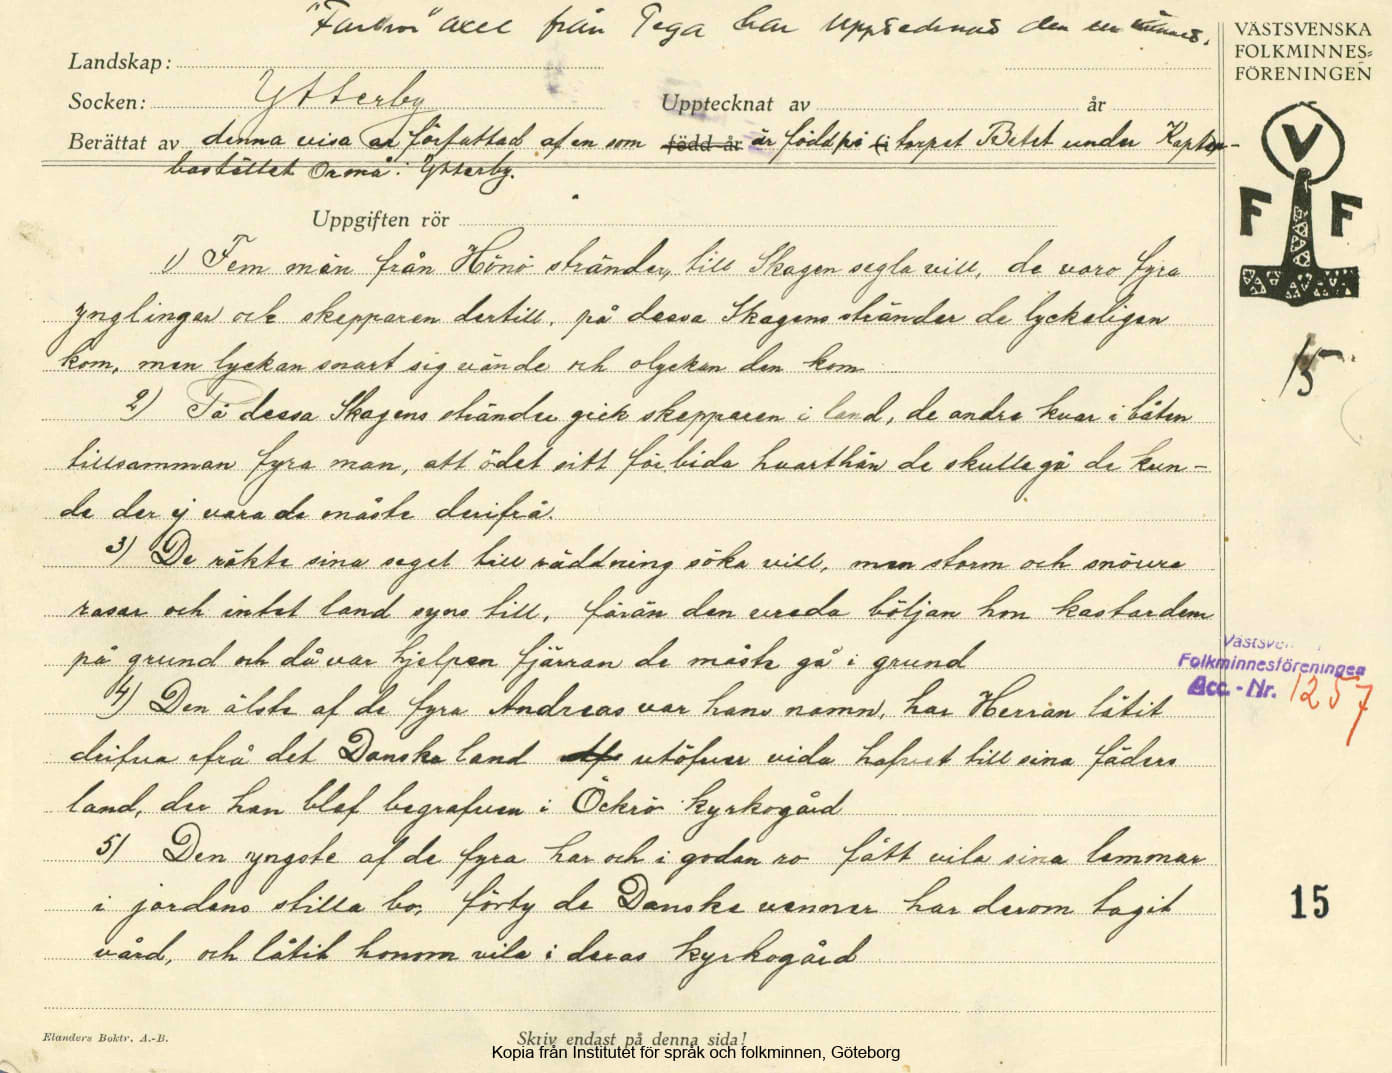 "Farbror" Axel från Tega har upptecknat den
VÄSTSVENSKA
FOLKMINNES=
FÖRENINGEN
Landskap:
Socken: Ytterby
Upptecknat av år
Berättat av denna visa är författad af en som född år är född på (i torpet Betet under Kaptens-
bostället Ormo i Ytterby.
V F F
Uppgiften rör
1) Fem män från Hönö stränder, till Skagen segla vill, de voro fyra
ynglingar och skepparen dertill, på dessa Skagens stränder de lyckeligen
kom, men lyckan snart sig vände och olyckan den kom
15
2) På dessa Skagens stränder gick skepparen i land, de andra kvar i båten
tillsamman fyra man, att ödet sitt förbida hvarthän de skulle gå de kun-
de der ej vara de måste derifrå.
3) De räkte sina segel till räddning söka vill, men storm och snöyra
rasar och intet land syns till, förän den vreda böljan hon kastar dem
på grund och då var hjelpen fjärran de måste gå i grund
Västsve
Folkminnesföreningen
Acc.-Nr. 1257
4) Den älste af de fyra Andreas var hans namn, har Herran låtit
drifva ifrå det Danska land utöfver vida hafvet till sina fäders
land, der han blef begrafven i Öckrö kyrkogård
5) Den yngste af de fyra har och i godan ro fått vila sina lemmar
i jordens stilla bo, förty de Danske venner har derom tagit
vård, och låtit honom vila i deras kyrkogård
15
Elanders Boktr. A.-B.
Skriv endast på denna sida!
Kopia från Institutet för språk och folkminnen, Göteborg